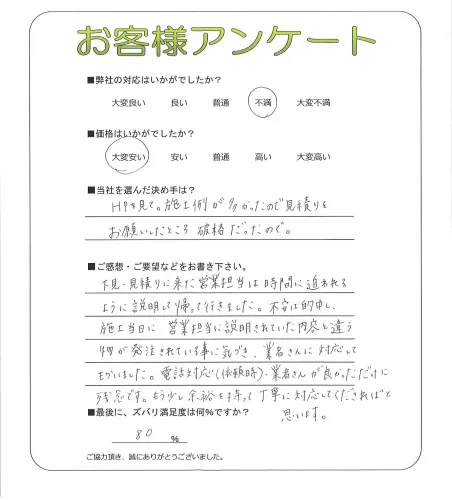 お客様アンケート
■弊社の対応はいかがでしたか?
大変良い 良い 普通 不満 大変不満
■価格はいかがでしたか?
大変安い 安い 普通 高い 大変高い
■当社を選んだ決め手は?
HPを見て。施工例が多かったので見積りを
お願いしたところ破格だったので。
■ご感想・ご要望などをお書き下さい。
下見・見積りに来た営業担当は時間に追われる
ように説明して帰って行きました。不安は的中し、
施工当日に営業担当に説明されていた内容と違う
物が発注されている事に気づき、業者さんに対応して
もらいました。電話対応(依頼時)・業者さんが良かっただけに
残念です。もう少し余裕を持って丁寧に対応してくだされば と
思います。
■最後に、ズバリ満足度は何%ですか?
80 %
ご協力頂き、誠にありがとうございました。